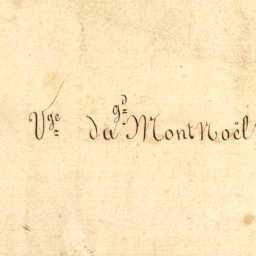 Vge du gd MontNoël